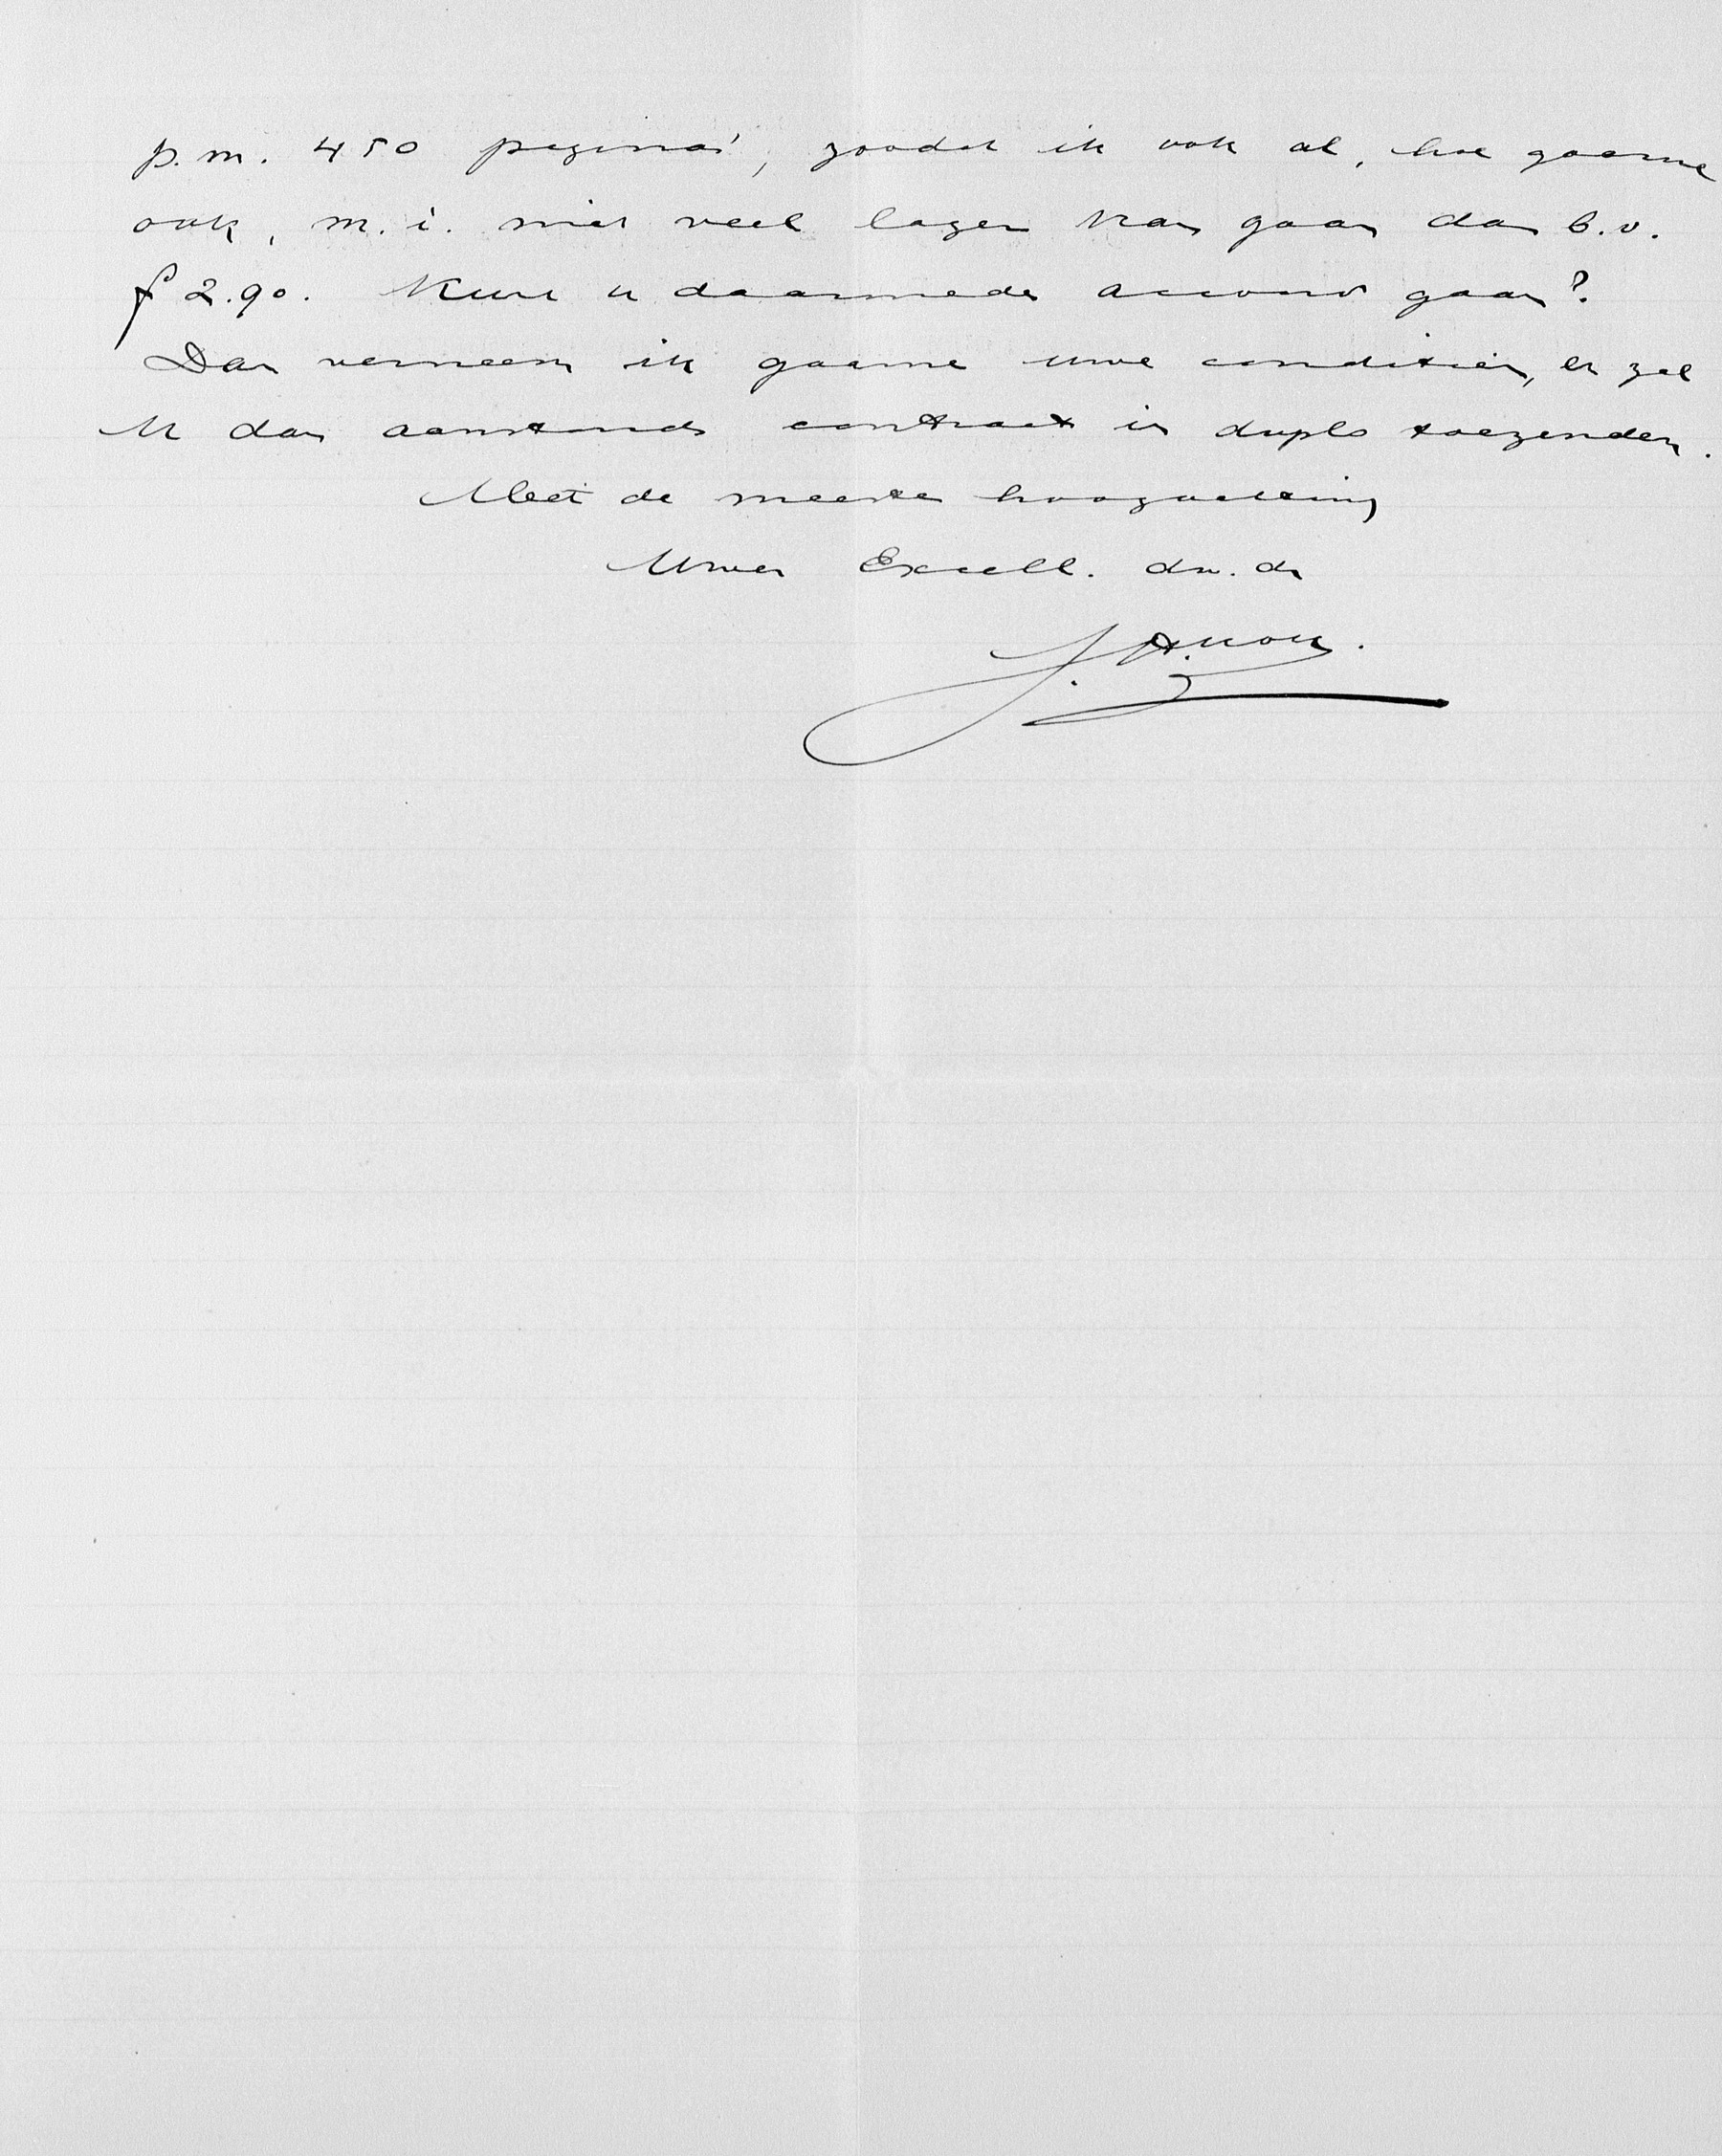 p.m. 450 pagina's, zoodat ik ook al, hoe gaarne
ook, m.i. niet veel lager kan gaan dan b.v.
f 2.90. Kunt u daarmede accoord gaan?
Dan verneem ik gaarne uwe conditiën, en zal
U dan aanstonds contract in duplo toezenden.
Met de meeste hoogachting
Uwer Excell. dw. dr